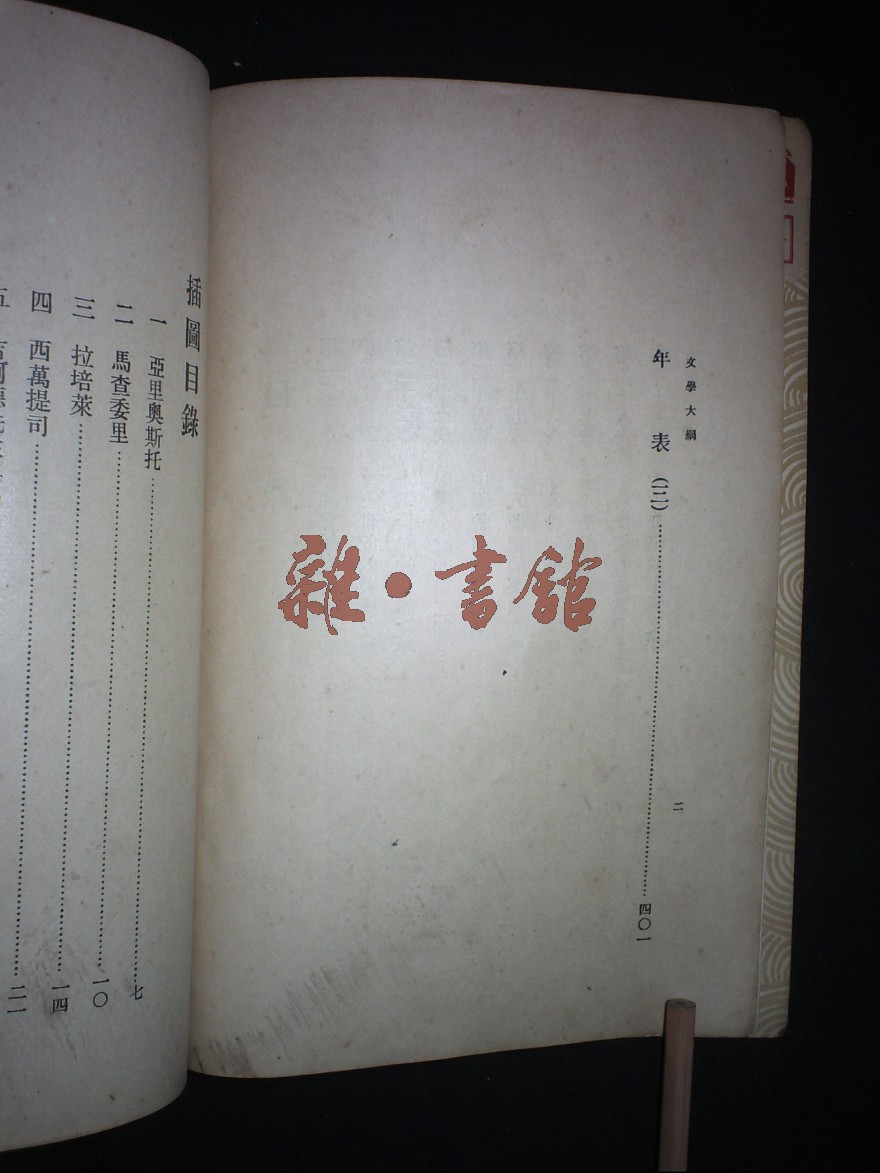 文學大綱
二
年表(二)……四〇一
插圖目錄
一 亞里奧斯托……七
二 馬查委里……一〇
三 拉培萊……一四
四 西萬提司……二一
雜•書館